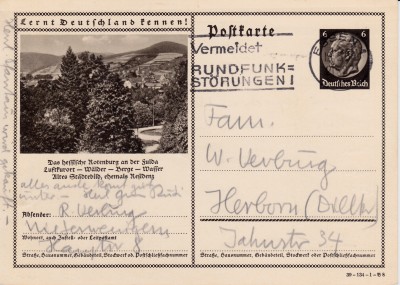 Lernt Deutschland kennen!
Postkarte
Vermeidet
RUNDFUNK=
STÖRUNGEN!
6 6
Deutsches Reich
Das hessische Rotenburg an der Fulda
Luftkurort – Wälder – Berge – Wasser
Altes Städtebild, ehemals Residenz
alles andere
Absender: R. Verbürg
Wohnort, auch Zustell- oder Leitpostamt
Straße, Hausnummer, Gebäudeteil, Stockwerk od. Postschließfachnummer
Fam.
W. Verbürg
Herborn (Dillkr.)
Jahnstr 34
Straße, Hausnummer, Gebäudeteil, Stockwerk oder Postschließfachnummer
39–134–1–B 8